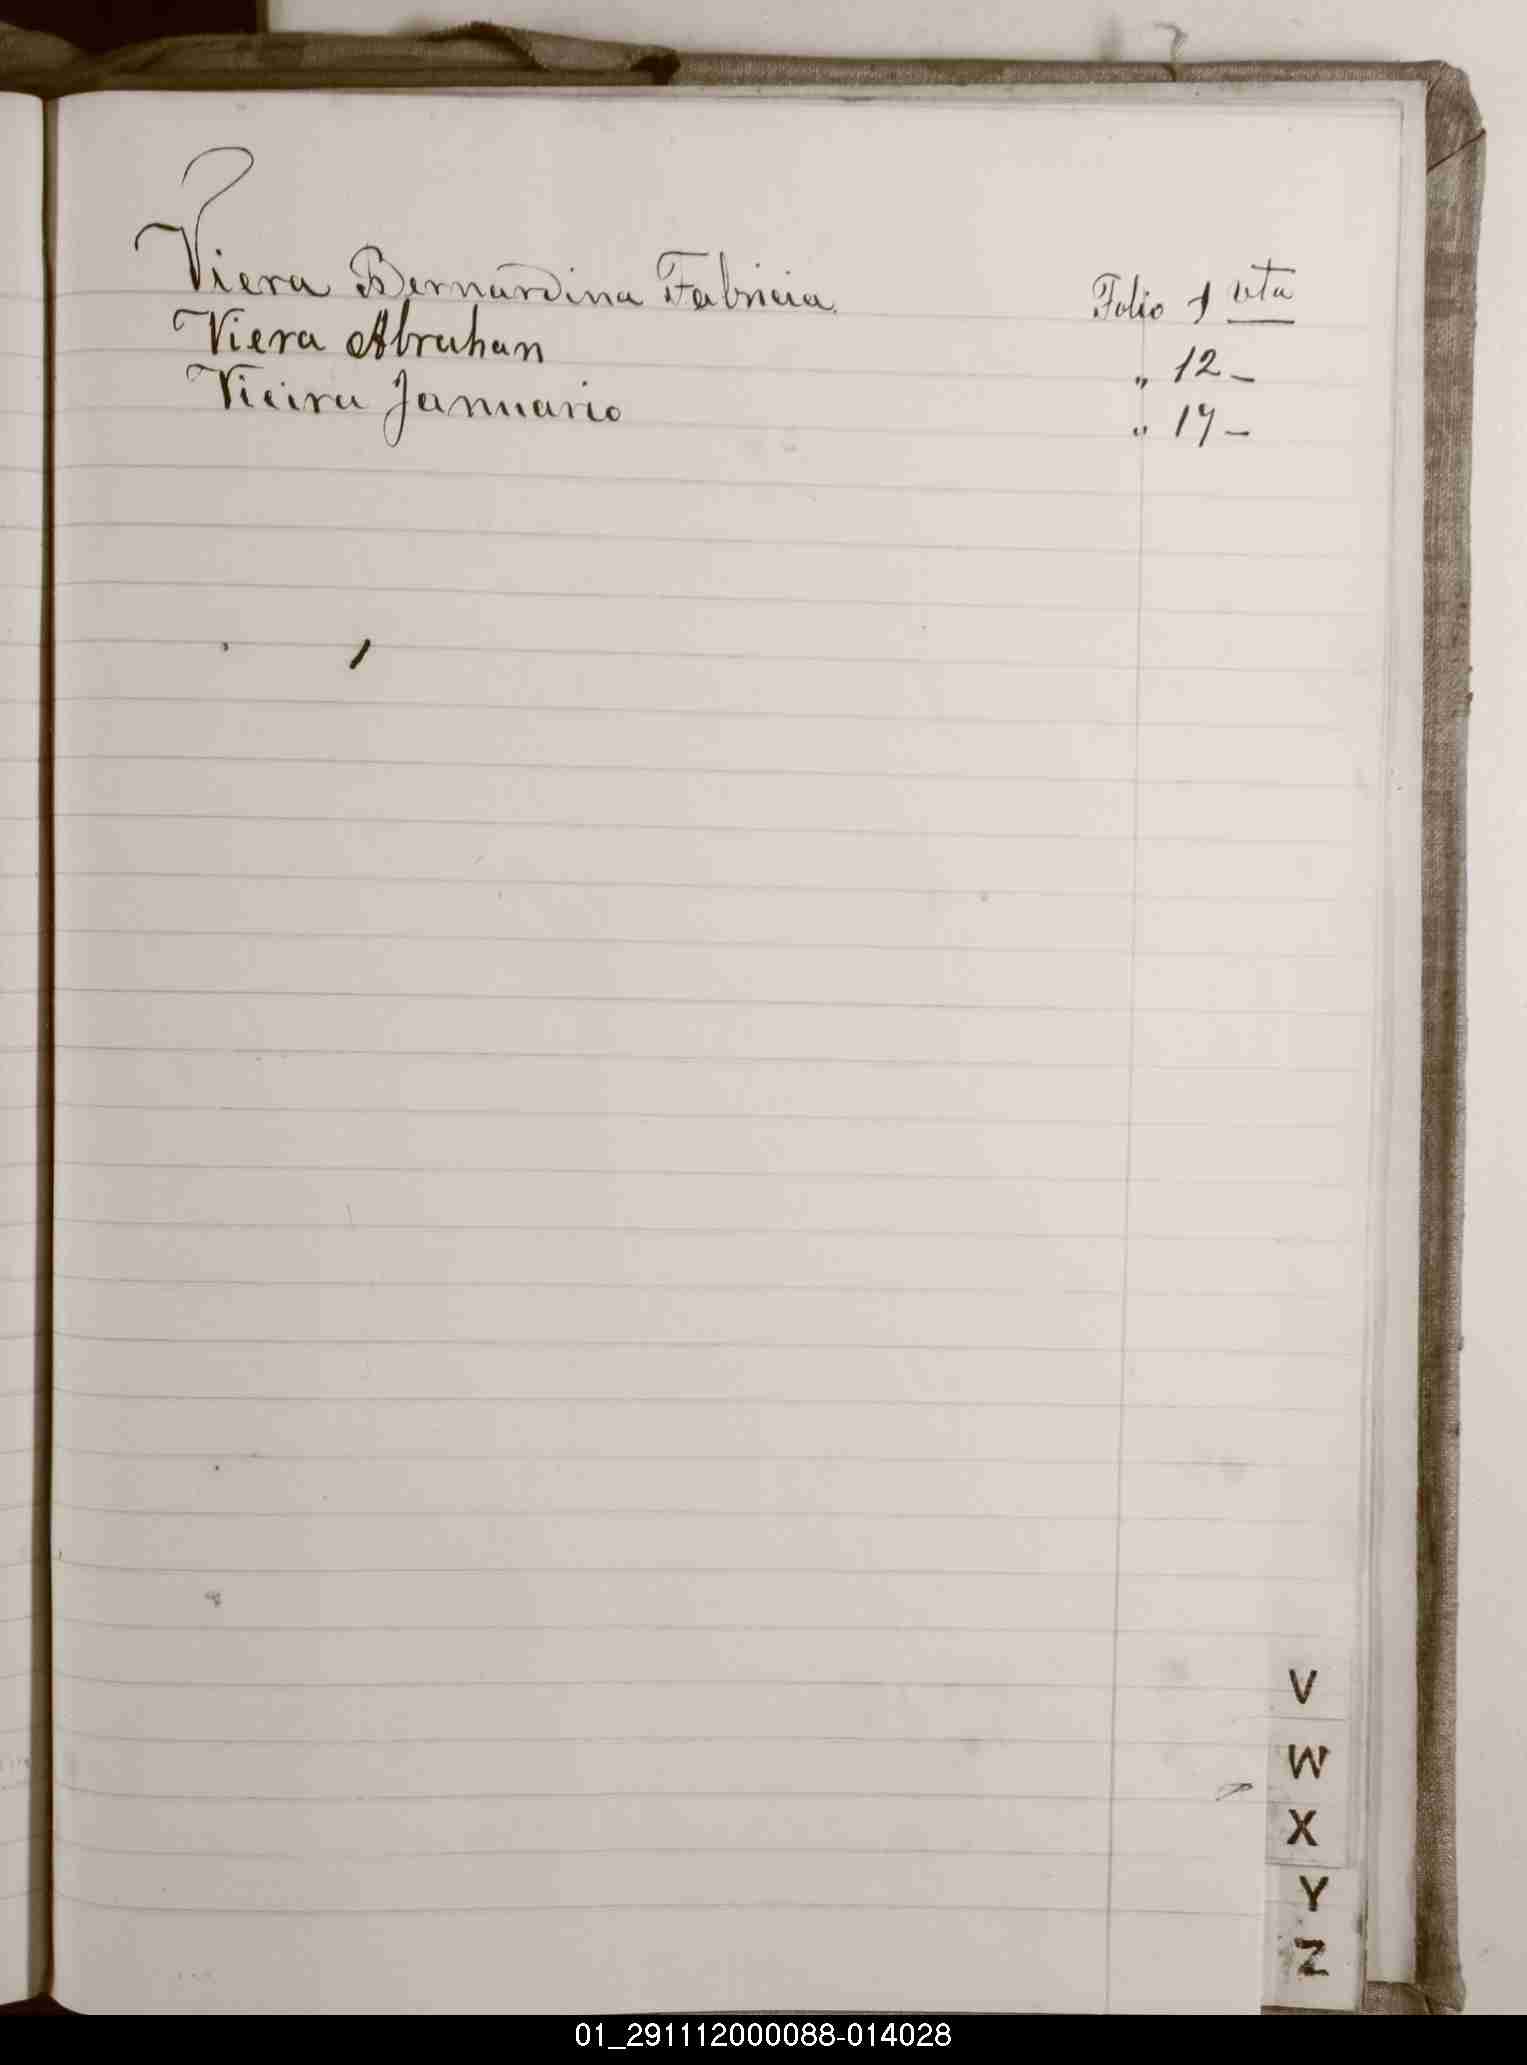 Viera Bernardina Fabricia Folio 1 vta
Viera Abrahan " 12 -
Vieira Januario " 17 -
V
W
X
Y
Z
01_291112000088-014028